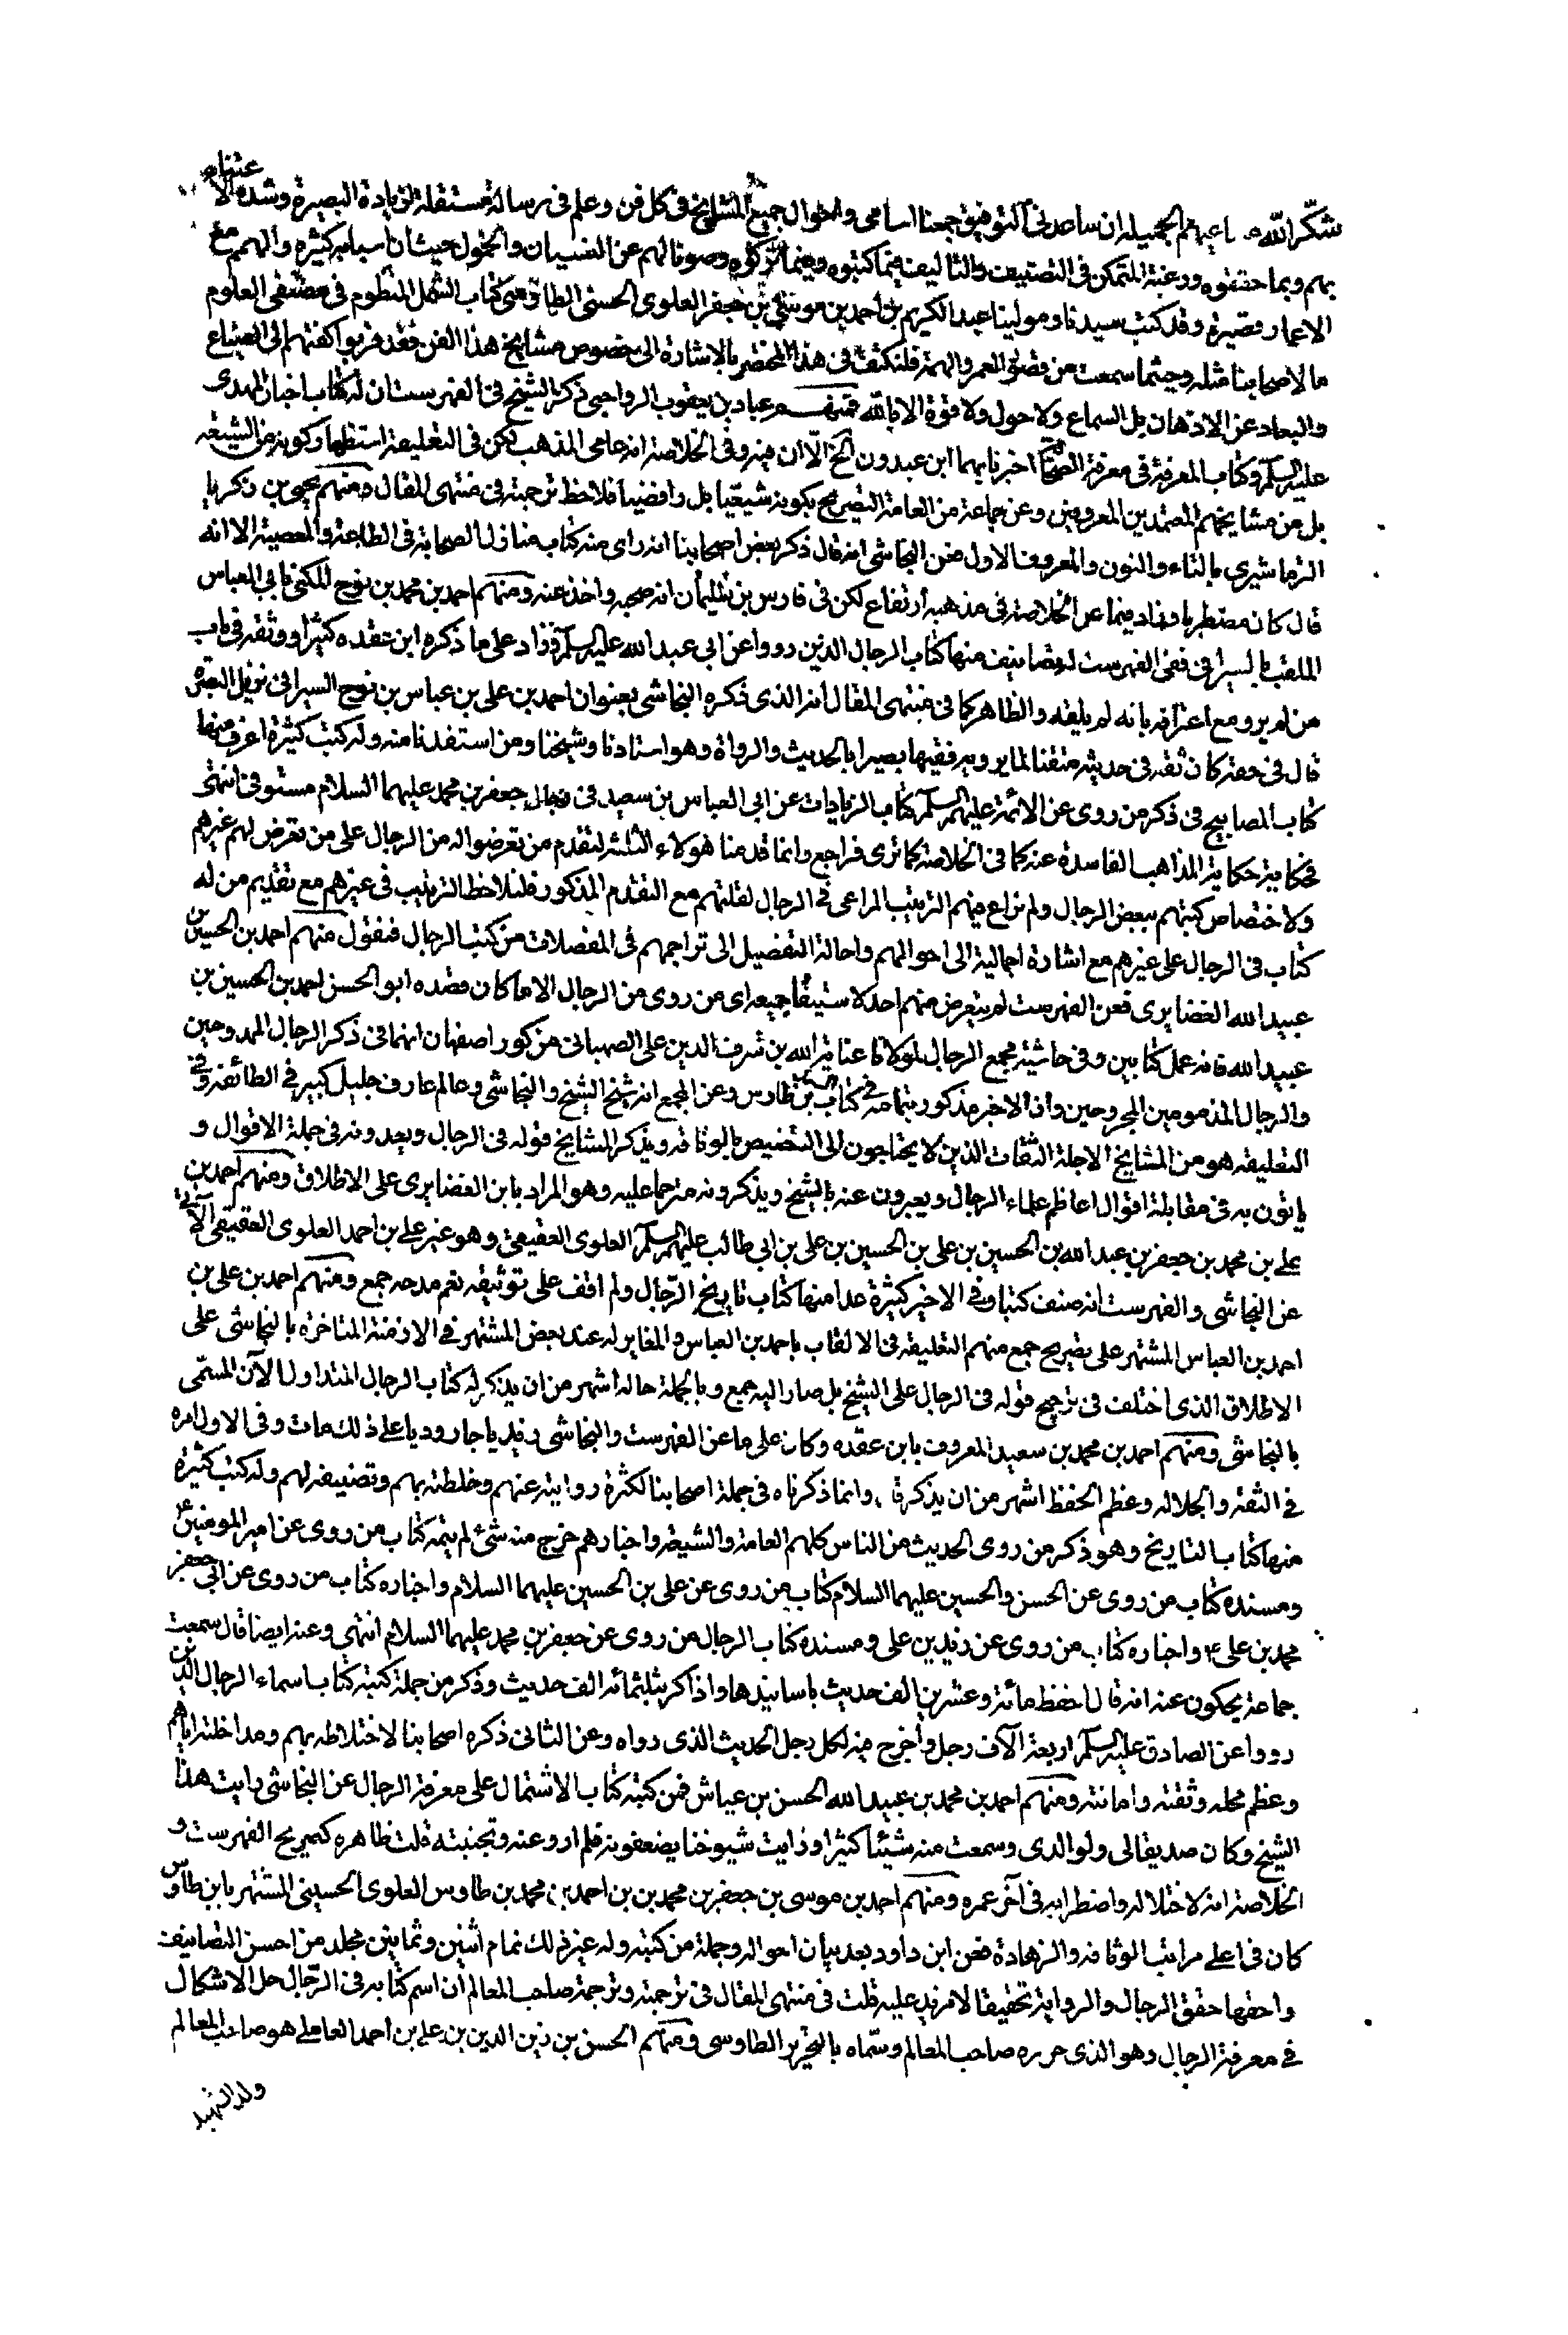 شكر الله مساعيهم الجميله ان ساعدني التوفيق جمعنا اسامي واحوال جميع المشايخ في كل فن وعلم في رسالة مستقلة لزيادة البصيرة وشدة الاعتناء
بهم وبما حققوه ورغبة المتمكن في التصنيف والتاليف فيما كتبوه وفيما تركوه وصونا لهم عن النسيان والخمول حيث ان اسبابه كثيرة والهمم مع
الاعمار قصيرة وقد كتب سيدنا ومولينا عبد الكريم بن احمد بن موسى بن جعفر العلوي الحسني الطاوسي كتاب الشمل المنظوم في مصنفي العلوم
ما لاصحابنا مثله وحيثما سمعت من قصور العمر والهمة فلنكتف في هذا المختصر بالاشارة الى خصوص مشايخ هذا الفن فقد قربوا كفتهم الى الضياع
والبعاد عن الاذهان بل السماع ولا حول ولا قوة الا بالله فمنهم عباد بن يعقوب الرواجني ذكر الشيخ في الفهرست ان له كتاب اخبار المهدي
عليه السلم وكتاب المعرفة في معرفة الصحابة اخبرنا بهما ابن عبدون الخ الا ان فيه وفي الخلاصة انه عامي المذهب لكن في التعليقة استظهار كونه من الشيعه
بل من مشايخهم المعتمدين المعروفين وعن جماعة من العامة التصريح بكونه شيعيا بل رافضيا فلاحظ ترجمته في منتهى المقال ومنهم يحيى بن زكريا
الترماشيري بالتاء والنون والمعروف الاول فعن النجاشي انه قال ذكر بعض اصحابنا انه راى منه كتاب منازل الصحابة في الطاعة والمعصية الا انه
قال كان مضطربا وزاد فيما عن الخلاصة في مذهبه ارتفاع لكن في فارس بن سليمان انه صحبه واخذ عنه ومنهم احمد بن محمد بن نوح المكنى بابي العباس
الملقب بالسيرافي ففي الفهرست له تصانيف منها كتاب الرجال الذين رووا عن ابي عبد الله عليه السلم فزاد على ما ذكره ابن عقده كثيرا ووثقه في باب
من لم يرو مع اعترافه بانه لم يلقه والظاهر كما في منتهى المقال انه الذي ذكره النجاشي بعنوان احمد بن علي بن عباس بن نوح السيرافي نزيل البصرة
قال في حقه كان ثقه في حديثه متقنا لما يرويه فقيها بصيرا بالحديث والرواة وهو استادنا وشيخنا ومن استفدنا منه وله كتب كثيرة اعرف منها
كتاب المصابيح في ذكر من روى عن الائمة عليهم السلم كتاب الزيادات عن ابي العباس بن سعيد في رجال جعفر بن محمد عليهما السلام مستوفى انتهى
فحكاية حكاية المذاهب الفاسدة عنه كما في الخلاصة كما ترى فراجع وانما قدمنا هولاء الثلثه لتقدم من تعرضوا له من الرجال على من تعرض لهم غيرهم
ولاختصاص كتبهم ببعض الرجال ولم نراع فيهم الترتيب المراعى في الرجال لقلتهم مع التقدم المذكور فلنلاحظ الترتيب في غيرهم مع تقديم من له
كتاب في الرجال على غيرهم مع اشارة اجمالية الى احوالهم واحالة التفصيل الى تراجمهم في المفصلات من كتب الرجال فنقول منهم احمد بن الحسين بن
عبيد الله الغضايري فعن الفهرست لم يتعرض منهم احد لاستيفاء جميعه اي من روى من الرجال الا ما كان قصده ابو الحسن احمد بن الحسين بن
عبيد الله فانه عمل كتابين وفي حاشية مجمع الرجال لمولانا عناية الله بن شرف الدين علي الصهباني من كور اصفهان انهما في ذكر الرجال الممدوحين
والرجال المذمومين المجروحين وان الاخير مذكور بتمامه في كتاب السيد بن طاوس وعن المجمع انه شيخ الشيخ والنجاشي وعالم عارف جليل كبير في الطائفه وفي
التعليقه هو من المشايخ الاجلة الثقات الذين لا يحتاجون الى التنصيص بالوثاقه ويذكر المشايخ قوله في الرجال ويعدونه في جملة الاقوال و
ياتون به في مقابلة اقوال اعاظم علماء الرجال ويعبرون عنه بالشيخ ويذكرونه مترحما عليه وهو المراد بابن الغضايري على الاطلاق ومنهم احمد بن
علي بن محمد بن جعفر بن عبد الله بن الحسين بن علي بن الحسين بن علي بن ابي طالب عليهم السلم العلوي العقيقي وهو غير علي بن احمد العلوي العقيقي الآتي
عن النجاشي والفهرست انه صنف كتبا وفي الاخير كثيرة عدا منها كتاب تاريخ الرجال ولم اقف على توثيقه نعم مدحه جمع ومنهم احمد بن علي بن
احمد بن العباس المشتهر على تصريح جمع منهم التعليقه في الالقاب باحمد بن العباس والمغاير له عند بعض المشتهر في الازمنة المتاخرة بالنجاشي على
الاطلاق الذي اختلف في ترجيح قوله في الرجال على الشيخ بل صار اليه جمع وبالجملة حاله اشهر من ان يذكر له كتاب الرجال المتداول الآن المسمى
بالنجاشي ومنهم احمد بن محمد بن سعيد المعروف بابن عقده وكان على ما عن الفهرست والنجاشي زيديا جاروديا على ذلك مات وفي الاول امره
في الثقة والجلاله وعظم الحفظ اشهر من ان يذكر وانما ذكرناه في جملة اصحابنا لكثرة روايته عنهم وخلطته بهم وتصنيفه لهم وله كتب كثيرة
منها كتاب التاريخ وهو ذكر من روى الحديث من الناس كلهم العامة والشيعه واخبارهم خرج منه شئ لم يتمه كتاب من روى عن امير المومنين ع
ومسنده كتاب من روى عن الحسن والحسين عليهما السلام كتاب من روى عن علي بن الحسين عليهما السلام واخباره كتاب من روى عن ابي جعفر
محمد بن علي ع واخباره كتاب من روى عن زيد بن علي ومسنده كتاب الرجال من روى عن جعفر بن محمد عليهما السلام انتهى وعنه ايضا قال سمعت
جماعة يحكون عنه انه قال احفظ مائة وعشرين الف حديث باسانيدها واذاكر بثلثمائه الف حديث وذكر من جملة كتبه كتاب اسماء الرجال الذين
رووا عن الصادق عليه السلم اربعة الآف رجل واخرج فيه لكل رجل الحديث الذي رواه وعن الثاني ذكره اصحابنا لاختلاطه بهم ومداخلته اياهم
وعظم محله وثقته وامانته ومنهم احمد بن محمد بن عبيد الله الحسن بن عياش فمن كتبه كتاب الاشتمال على معرفة الرجال عن النجاشي رايت هذا
الشيخ وكان صديقا لي ولوالدي وسمعت منه شيئا كثيرا ورايت شيوخنا يضعفونه فلم ارو عنه وتجنبته قلت ظاهره كصريح الفهرست و
الخلاصة انه لاختلاله واضطرابه في آخر عمره ومنهم احمد بن موسى بن جعفر بن محمد بن بن احمد بن محمد بن طاوس العلوي الحسيني المشتهر بابن طاوس
كان في اعلى مراتب الوثاقه والزهادة فعن ابن داود بعد بيان احواله وجملة من كتبه وله غير ذلك تمام اثنين وثمانين مجلد من احسن التصانيف
واحقها حقق الرجال والرواية تحقيقا لا مزيد عليه قلت في منتهى المقال في ترجمته وترجمة صاحب المعالم ان اسم كتابه في الرجال حل الاشكال
في معرفة الرجال وهو الذي حرره صاحب المعالم وسماه بالتحرير الطاوسي ومنهم الحسن بن زين الدين بن علي بن احمد العاملي هو صاحب المعالم
ولد الشهيد